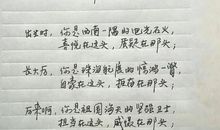 出生时，你是西南一隅的电光石火，
喜悦在这头，质疑在那头；
长大后，你是珠海航展的惊鸿一瞥，
自豪在这头，担荷在那头；
后来啊，你是祖国海天的坚强卫士，
担当在这头，威慑在那头；